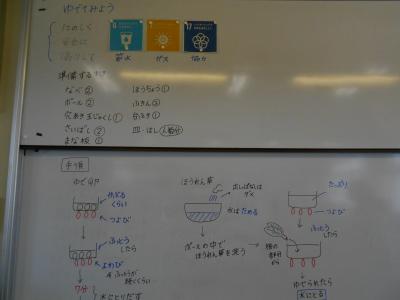 ゆでてみよう
たのしく
安全に
協力して
節水
ガス
協力
準備するもの
なべ②
ボール②
穴あき玉じゃくし①
さいばし②
まな板①
ほうちょう①
ふきん③
台ふき①
皿・はし人数分
手順
ゆで卵
かぶるくらい
つよび
ふっとうしたら
よわび
ふっとうが続くくらい
7分
水にとりだす
ほうれん草
出しっぱなしはダメ
水はためる
ボールの中でほうれん草を洗う
たっぷり
つよび
ふっとうしたら
根の部分から
ゆでられたら
水にとる